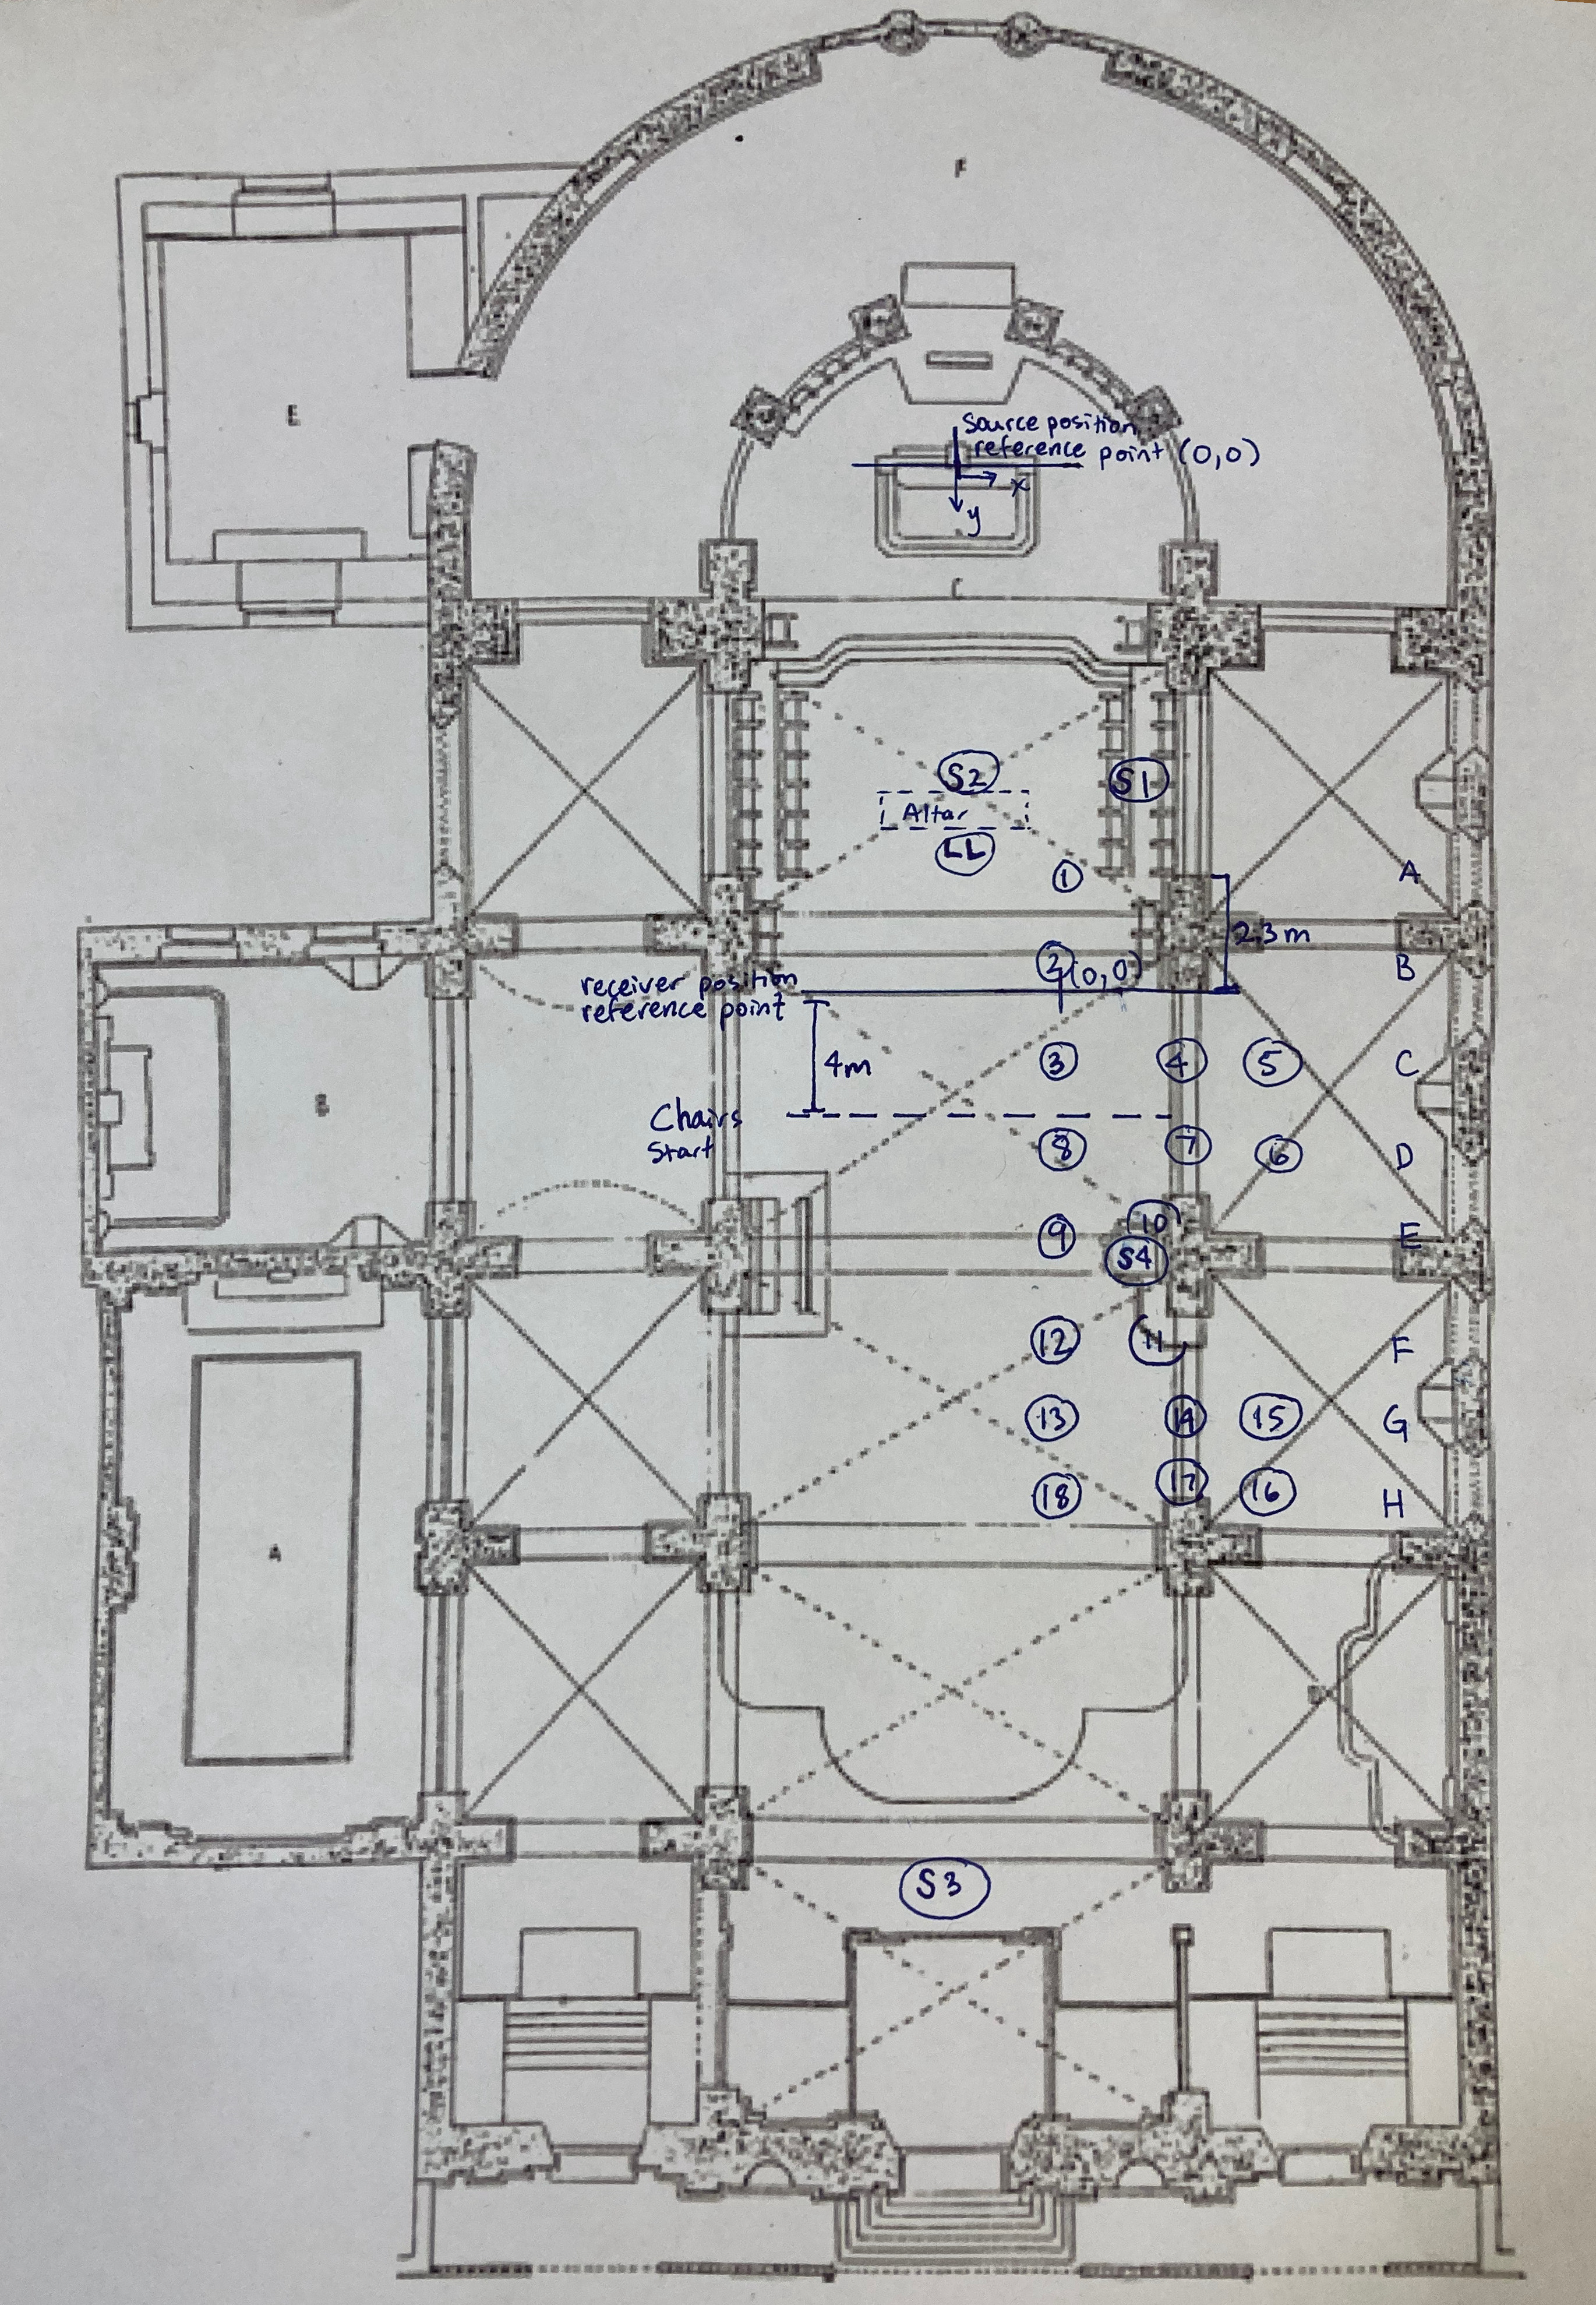 F
E
Source position
reference point (0,0)
x
y
C
S2
S1
Altar
LL
1
A
2.3m
2 (0,0)
B
receiver position
reference point
3
4
5
C
4m
B
Chairs
Start
8
7
6
D
9
10
E
S4
12
11
F
13
14
15
G
18
17
16
H
A
S3